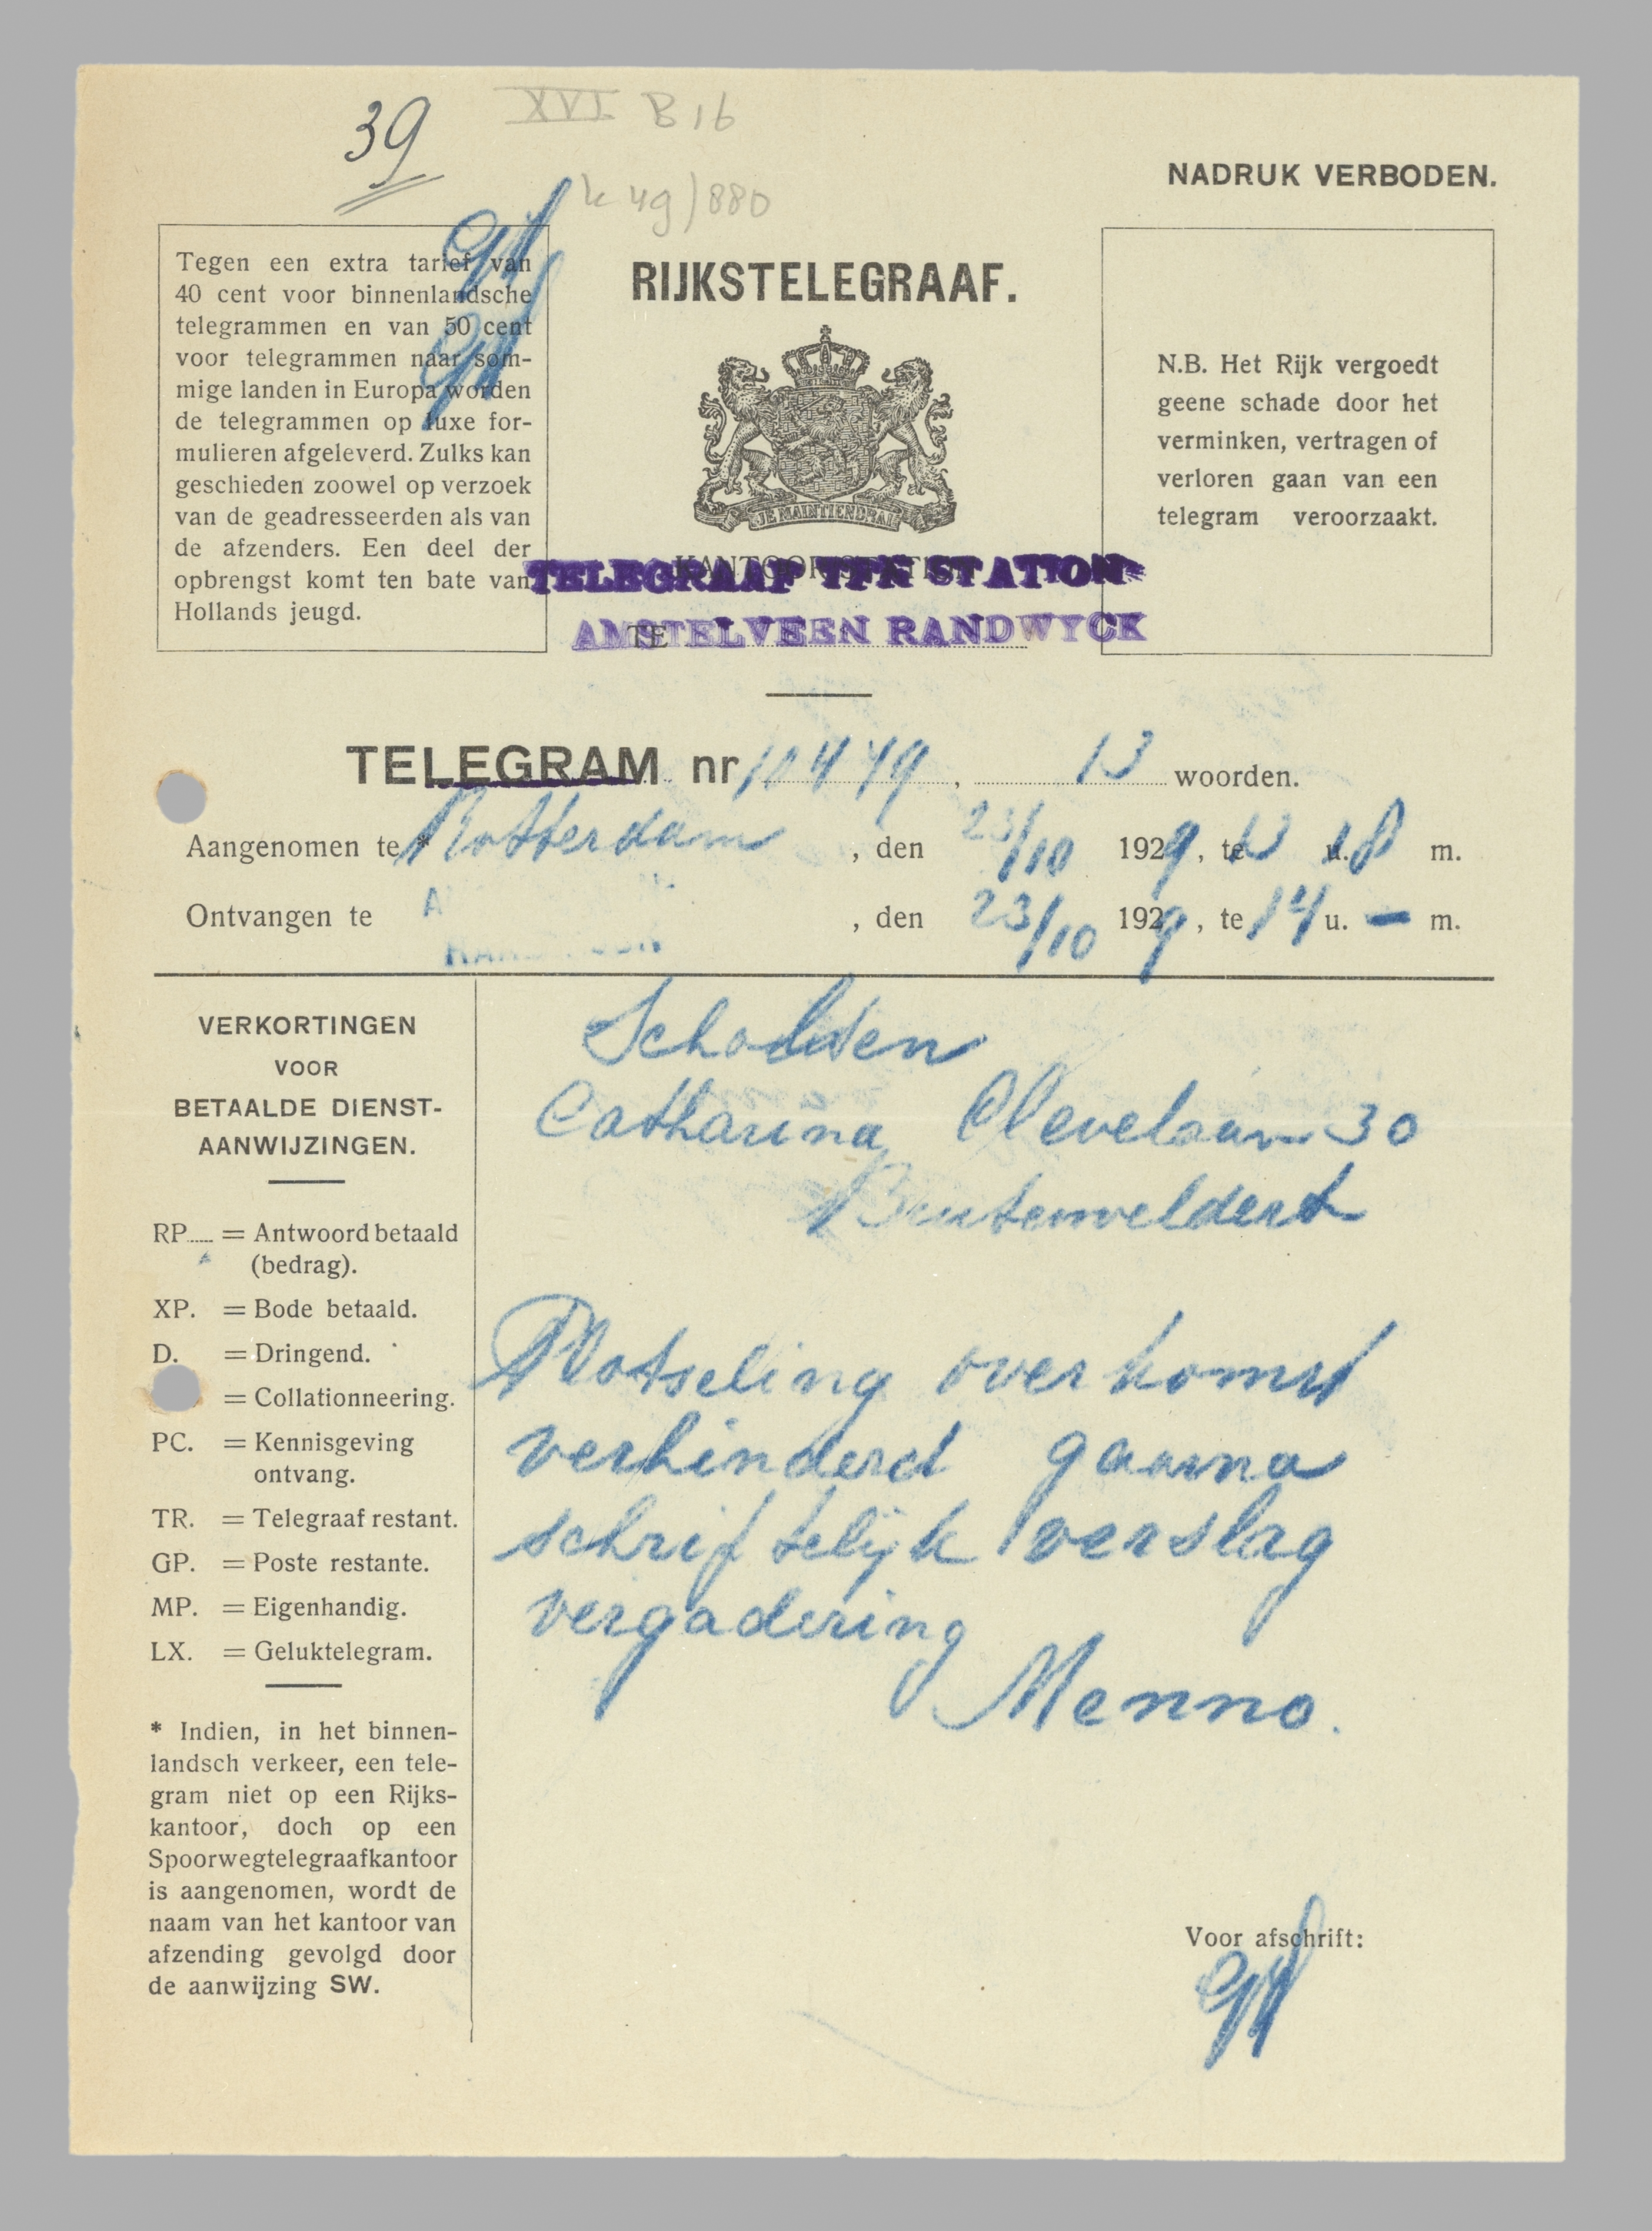 39
XVI B 16
k 49/880
NADRUK VERBODEN.
Tegen een extra tarief van
40 cent voor binnenlandsche
telegrammen en van 50 cent
voor telegrammen naar som-
mige landen in Europa worden
de telegrammen op luxe for-
mulieren afgeleverd. Zulks kan
geschieden zoowel op verzoek
van de geadresseerden als van
de afzenders. Een deel der
opbrengst komt ten bate van
Hollands jeugd.
RIJKSTELEGRAAF.
JE MAINTIENDRAI
N.B. Het Rijk vergoedt
geene schade door het
verminken, vertragen of
verloren gaan van een
telegram veroorzaakt.
TELEGRAAF TFN STATION
TE
AMSTELVEEN RANDWYCK
TELEGRAM nr 10449, 13 woorden.
Aangenomen te * Rotterdam, den 23/10 1929, te 13 u. 18 m.
Ontvangen te , den 23/10 1929, te 14 u. - m.
VERKORTINGEN
VOOR
BETAALDE DIENST-
AANWIJZINGEN.
RP = Antwoord betaald
(bedrag).
XP. = Bode betaald.
D. = Dringend.
= Collationneering.
PC. = Kennisgeving
ontvang.
TR. = Telegraaf restant.
GP. = Poste restante.
MP. = Eigenhandig.
LX. = Geluktelegram.
* Indien, in het binnen-
landsch verkeer, een tele-
gram niet op een Rijks-
kantoor, doch op een
Spoorwegtelegraafkantoor
is aangenomen, wordt de
naam van het kantoor van
afzending gevolgd door
de aanwijzing SW.
Scholden
Catharina Clevelaan 30
Buitenveldert
Plotseling overkomst
verhinderd gaarna
schriftelijk verslag
vergadering
Menno.
Voor afschrift: